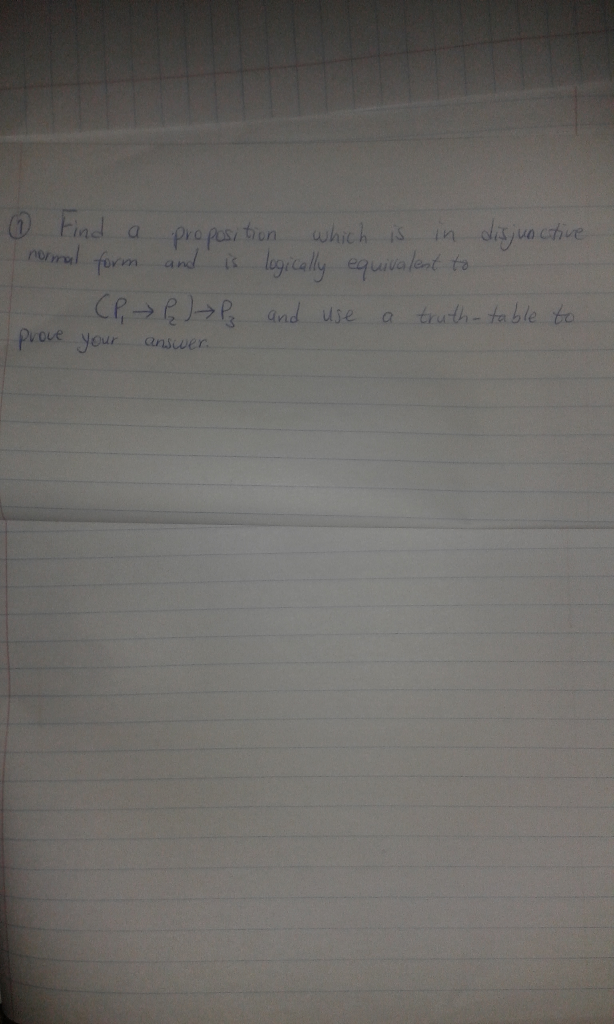 ① Find a proposition which is in disjunctive
normal form and is logically equivalent to
(P₁ → P₂) → P₃ and use a truth-table to
prove your answer.